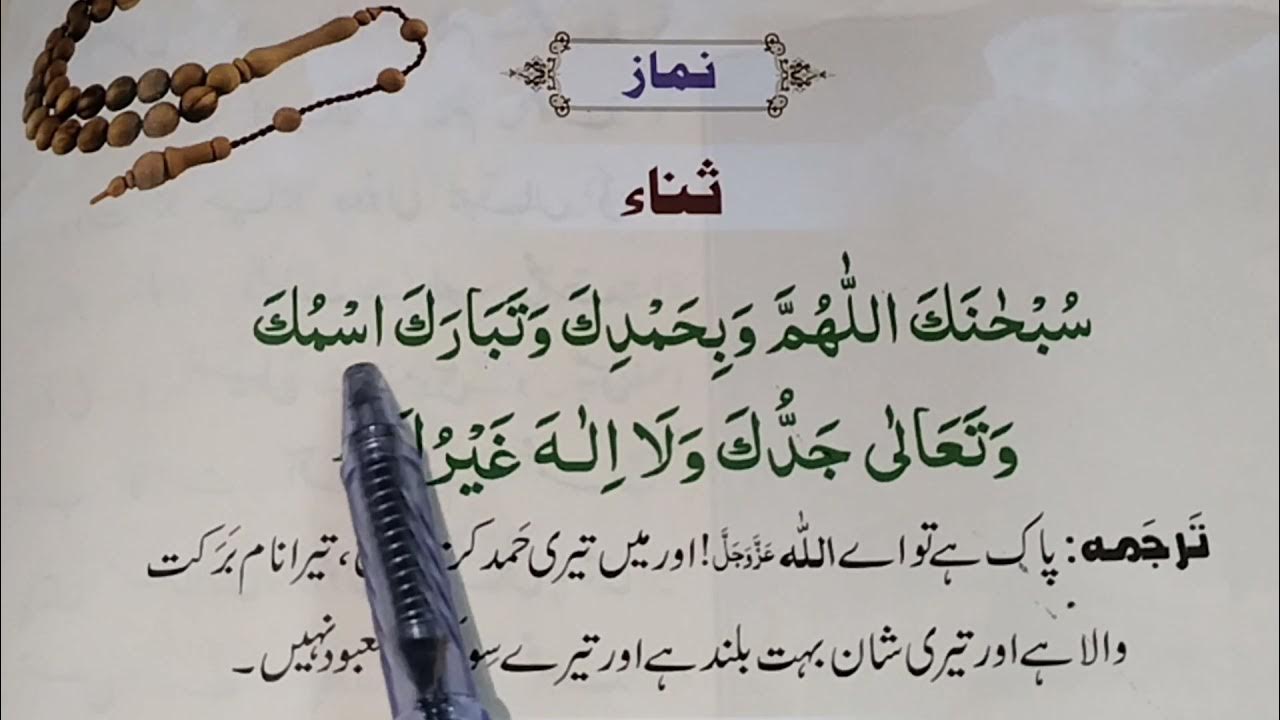 نماز
ثناء
سُبْحٰنَكَ اللّٰهُمَّ وَبِحَمْدِكَ وَتَبَارَكَ اسْمُكَ
وَتَعَالٰى جَدُّكَ وَلَا اِلٰهَ
تَرجَمه: پاک ہے تو اے اللّٰه عَزَّوَجَلَّ! اور میں تیری حَمد، تیرا نام بَرَکت
والا ہے اور تیری شان بہت بلند ہے اور تیرے نہیں۔